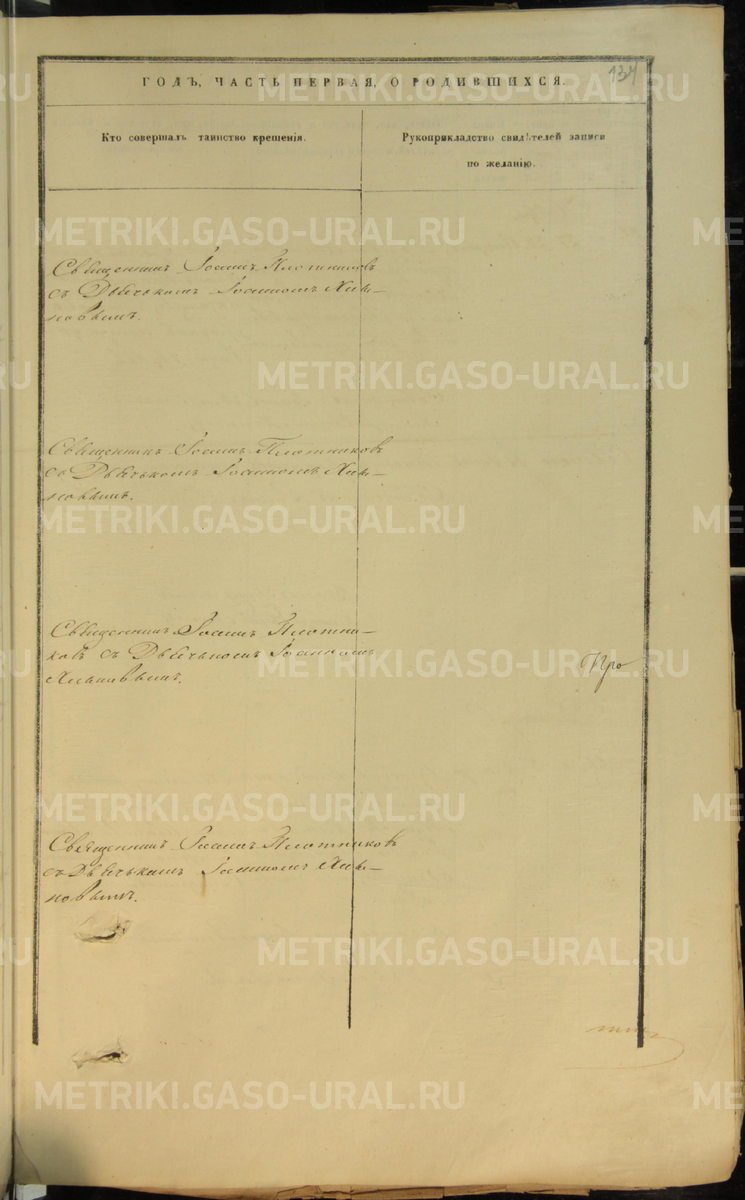 134
ГОДЪ, ЧАСТЬ ПЕРВАЯ, О РОДИВШИХСЯ.
Кто совершалъ таинство крещенія.
Рукоприкладство свидѣтелей записи
по желанію.
Священникъ Іоаннъ Плотниковъ
съ Дьячькомъ Іоанномъ
новымъ.
Священникъ Іоаннъ Плотниковъ
съ Дьячькомъ Іоанномъ
новымъ.
Священникъ Іоаннъ Плотни–
ковъ съ Дьячькомъ Іоанномъ
Про
Священникъ Іоаннъ Плотниковъ
съ Дьячькомъ Іоанномъ
новымъ.
METRIKI.GASO-URAL.RU